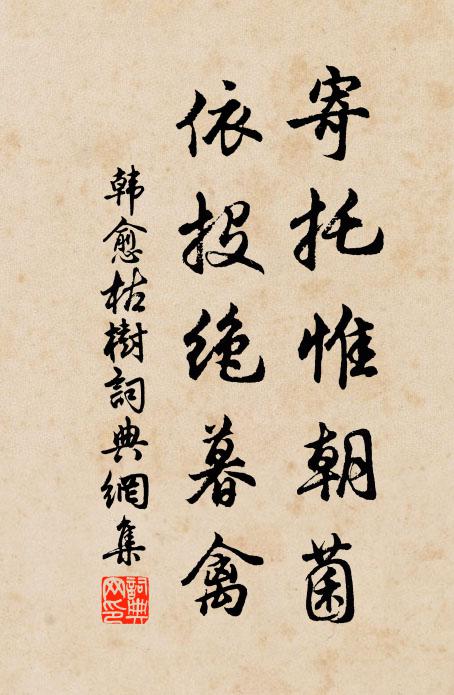 寄托惟朝菌
依投绝暮禽
韩愈枯樹詞典網集
詞典網印